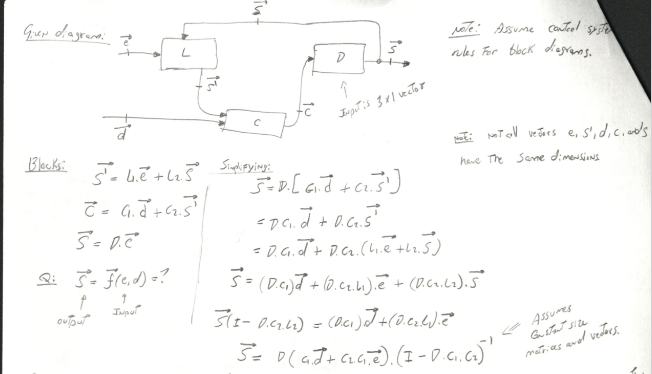 Given diagram:
e
L
s
s'
d
C
c
D
s
Input is 3x1 vector
Note: Assume control system
rules for block diagrams.
Note: Not all vectors e, s', d, c, and s
have the same dimensions
Blocks:
s' = L1.e + L2.s
c = C1.d + C2.s'
s = D.c
Q: s = f(e,d) = ?
output
Input
Simplifying:
s = D.[C1.d + C2.s']
= D C1.d + D.C2.s'
= D.C1.d + D.C2.(L1.e + L2.s)
s = (D.C1)d + (D.C2.L1).e + (D.C2.L2).s
s(I - D.C2.L2) = (D.C1)d + (D.C2.L1).e
s = D(C1.d + C2.C1.e).(I - D.C1.C2)^-1
Assumes
constant size
matrices and vectors.